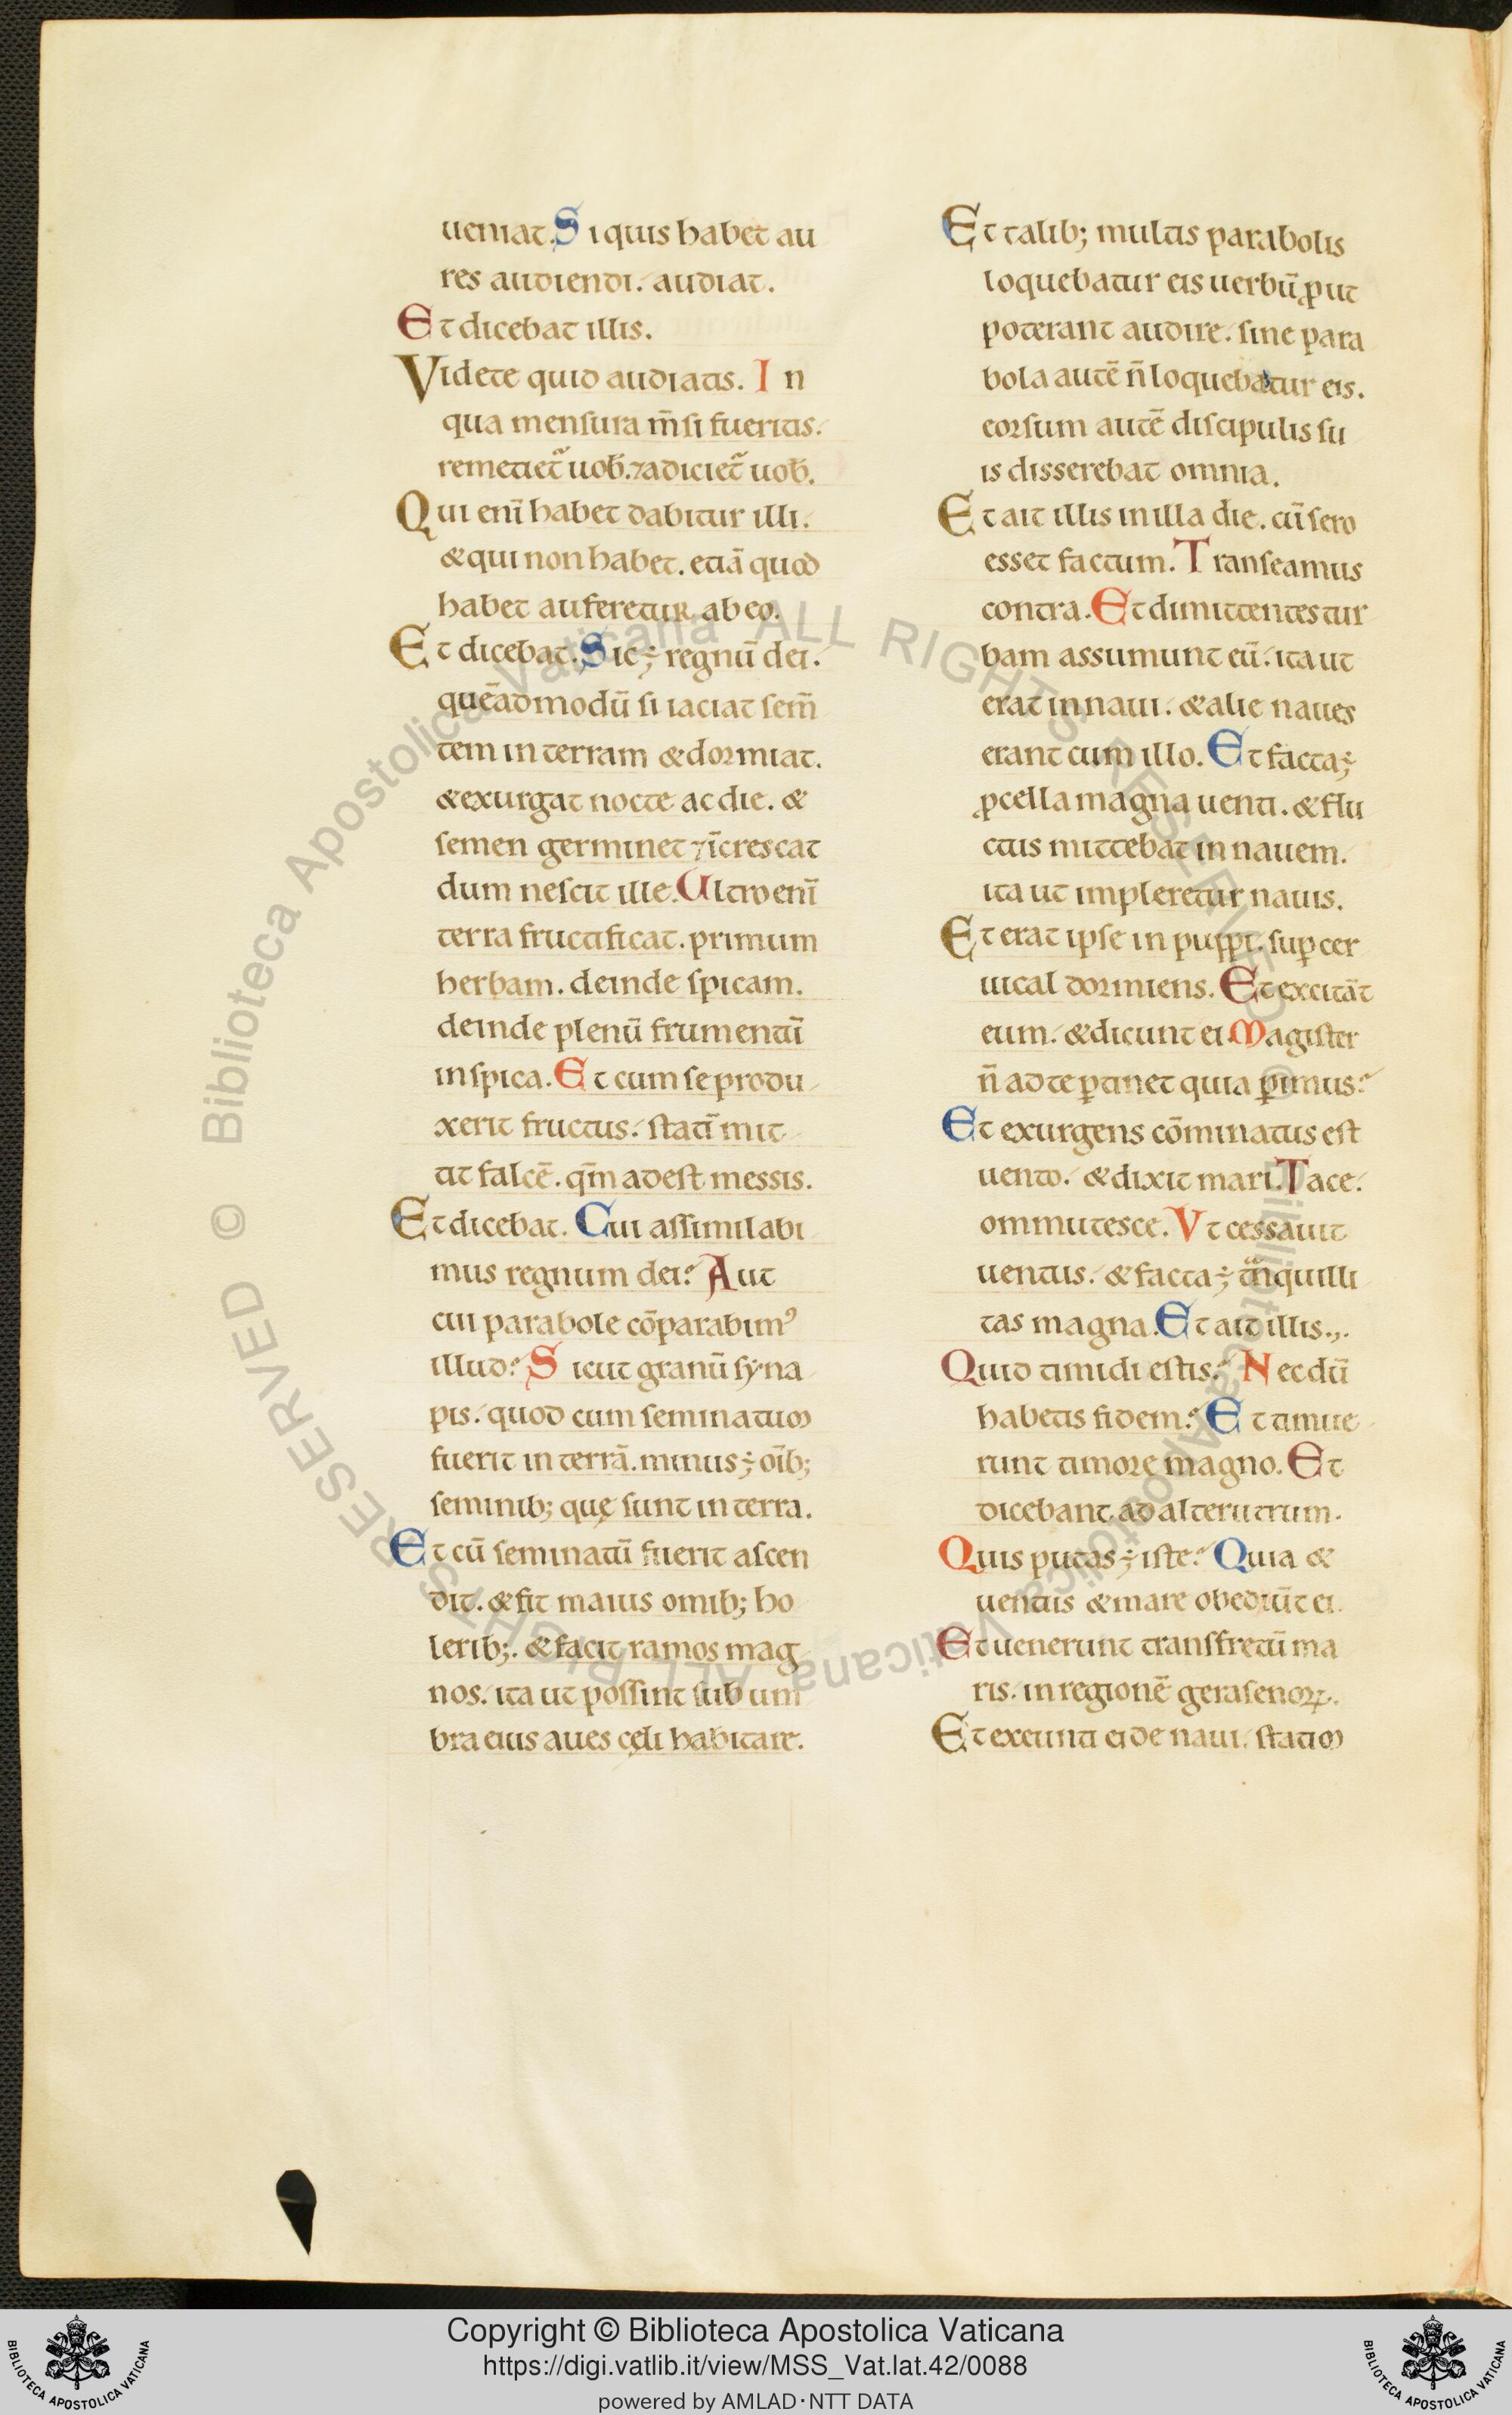 ueniat. Si quis habet au
res audiendi. audiat.
Et dicebat illis.
Videte quid audiatis. In
qua mensura m̄si fueritis.
remetiet᷑ uob̄. ⁊ adiciet᷑ uob̄.
Qui eni̅ habet dabitur illi.
& qui non habet. etiā quod
habet auferetur ab eo.
Et dicebat. Sic ÷ regnū dei.
quēadmodū si iaciat sem̄
tem in terram & dormiat.
& exurgat nocte ac die. &
semen germinet ⁊ i̅crescat
dum nescit ille. Ultro eni̅
terra fructificat. primum
herbam. deinde spicam.
deinde plenū frumentū
in spica. Et cum se produ
xerit fructus. stati̅ mit
tit falcē. qm̄ adest messis.
Et dicebat. Cui assimilabi
mus regnum dei? Aut
cui parabole cōparabimꝰ
illud? Sicut granū syna
pis. quod cum seminatum
fuerit in terrā. minus ÷ oi̅b;
seminib; quę sunt in terra.
Et cū seminatū fuerit ascen
dit. & fit maius omib; ho
lerib;. & facit ramos mag
nos. ita ut possint sub um
bra eius aues cęli habitare.
Et talib; multis parabolis
loquebatur eis uerbū ꝓut
poterant audire. sine para
bola autē n̄ loquebatur eis.
eorsum autē discipulis su
is disserebat omnia.
Et ait illis in illa die. cū sero
esset factum. Transeamus
contra. Et dimittentes tur
bam assumunt eū. ita ut
erat in naui. & alie naues
erant cum illo. Et facta ÷
ꝓcella magna uenti. & flu
ctus mittebat in nauem.
ita ut impleretur nauis.
Et erat ipse in puppi. suꝑ cer
uical dormiens. Et excitāt
eum. & dicunt ei. Magister
n̄ ad te ꝑtinet quia ꝑimus?
Et exurgens cōminatus est
uento. & dixit mari. Tace.
ommutesce. Vt cessauit
uentus. & facta ÷ tᷓnquilli
tas magna. Et ait illis.,.
Quid timidi estis? Necdū
habetis fidem? Et timue
runt timore magno. Et
dicebant ad alterutrum.
Quis putas ÷ iste? Quia &
uentus & mare obediūt ei.
Et uenerunt transfretū ma
ris. in regionē gerasenoꝝ.
Et exeunti ei de naui. statim
Copyright © Biblioteca Apostolica Vaticana
https://digi.vatlib.it/view/MSS_Vat.lat.42/0088
powered by AMLAD·NTT DATA
BIBLIOTECA APOSTOLICA VATICANA
BIBLIOTECA APOSTOLICA VATICANA
© Biblioteca Apostolica Vaticana ALL RIGHTS RESERVED
© Biblioteca Apostolica Vaticana ALL RIGHTS RESERVED